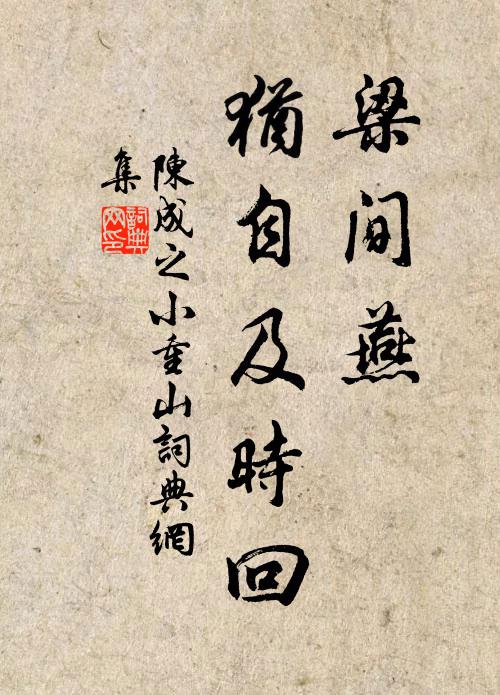 梁间燕
猶自及時回
陳成之小重山詞典網
集
詞典
网印